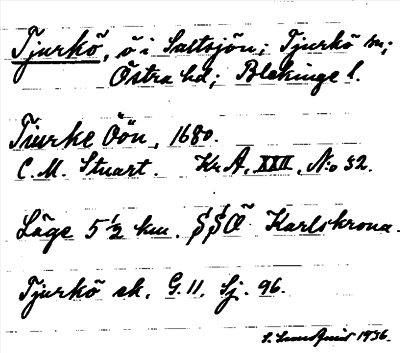 Tjurkö, ö i Saltsjön; Tjurkö sn;
Östra hd; Blekinge l.
Tiurke Öön, 1680.
C. M. Stuart. Kr A, XXII, No 32.
Läge 5 1/2 km. SSÖ Karlskrona.
Tjurkö sk. G. 11. Sj. 96.
1936.